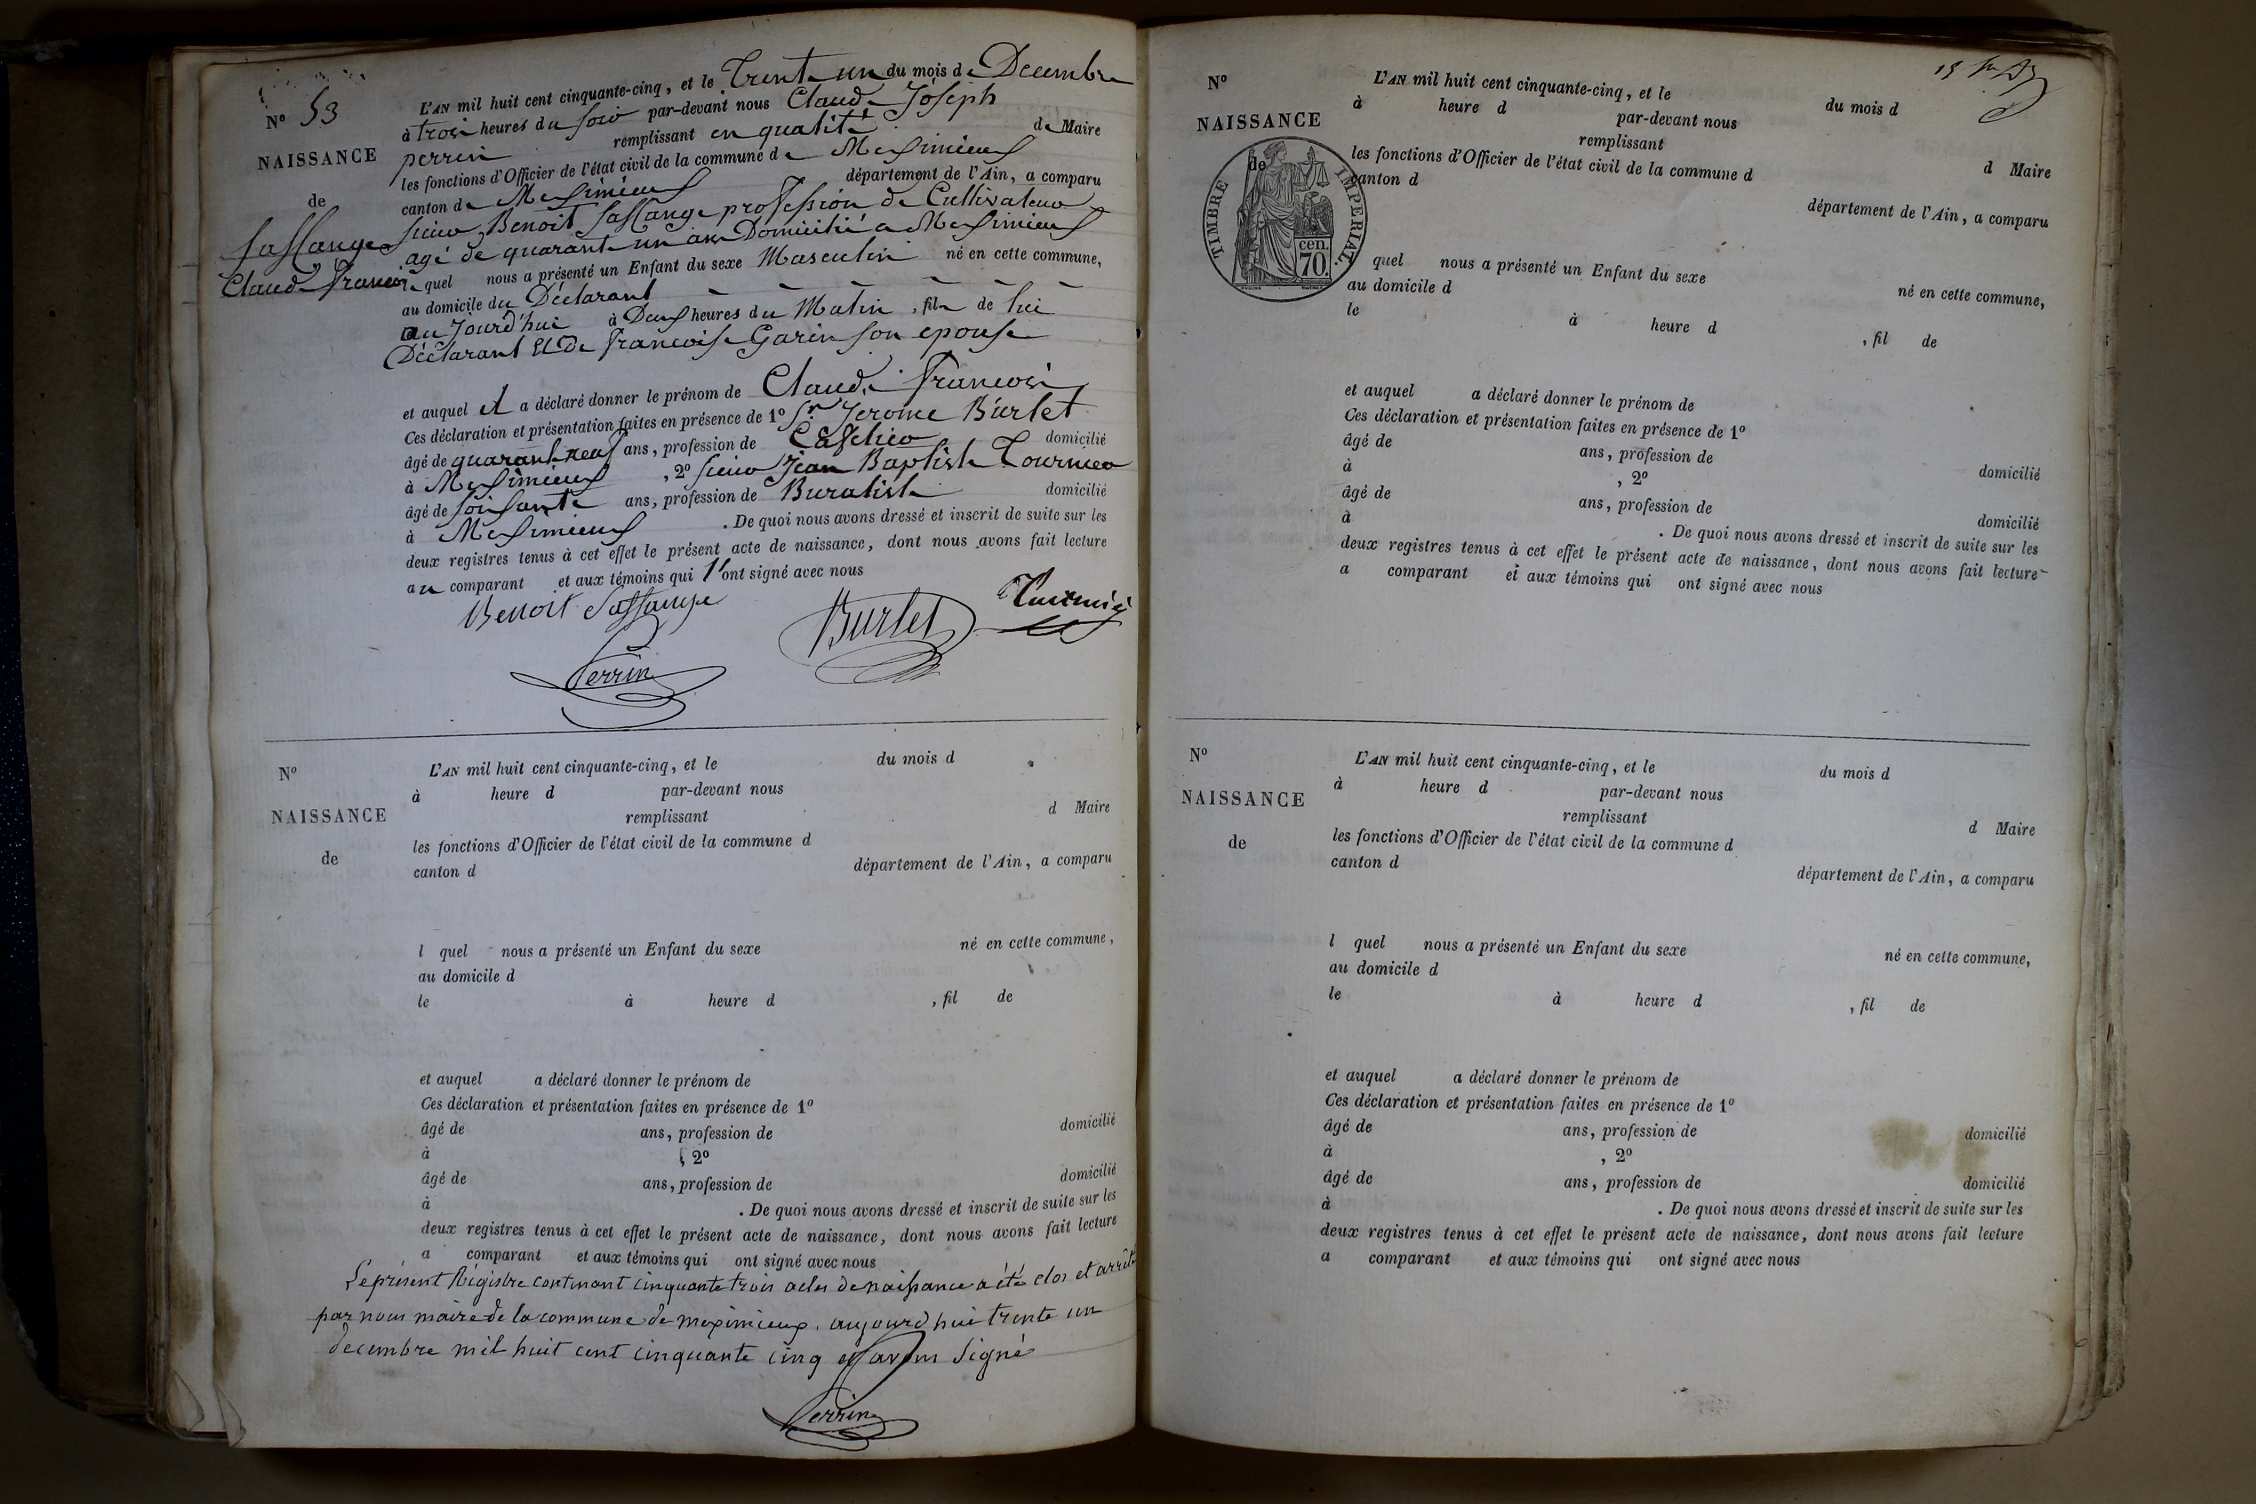 N° 53
NAISSANCE
de
Sallange
Claude François
L'AN mil huit cent cinquante-cinq, et le Trente un du mois de Decembre
à trois heures du soir par-devant nous Claude Joseph
perrin remplissant en qualité de Maire
les fonctions d'Officier de l'état civil de la commune de Meximieux
canton de Meximieux département de l'Ain, a comparu
sieur Benoit Sallange profession de Cultivateur
agé de quarante un ans Domicilié a Meximieux
lequel nous a présenté un Enfant du sexe Masculin né en cette commune,
au domicile du Déclarant
au Jourd'hui à Deux heures du Matin, fils de lui
Déclarant Et de francoise Garin son epouse
et auquel il a déclaré donner le prénom de Claude francois
Ces déclaration et présentation faites en présence de 1° Sr Jerome Burlet
âgé de quarante neuf ans, profession de domicilié
à Meximieux, 2° sieur Jean Baptiste Tournier
âgé de soixante ans, profession de Buraliste domicilié
à Meximieux. De quoi nous avons dressé et inscrit de suite sur les
deux registres tenus à cet effet le présent acte de naissance, dont nous avons fait lecture
au comparant et aux témoins qui l'ont signé avec nous
Benoit Sallange
Burlet
Tournier
Perrin
N°
NAISSANCE
de
L'AN mil huit cent cinquante-cinq, et le du mois d
à heure d par-devant nous
remplissant d Maire
les fonctions d'Officier de l'état civil de la commune d
canton d département de l'Ain, a comparu
l quel nous a présenté un Enfant du sexe né en cette commune,
au domicile d
le à heure d , fil de
et auquel a déclaré donner le prénom de
Ces déclaration et présentation faites en présence de 1°
âgé de ans, profession de domicilié
à , 2°
âgé de ans, profession de domicilié
à . De quoi nous avons dressé et inscrit de suite sur les
deux registres tenus à cet effet le présent acte de naissance, dont nous avons fait lecture
a comparant et aux témoins qui ont signé avec nous
Le présent Régistre contenant cinquante trois actes de naissance a été clos et arrêté
par nous maire de la commune de meximieux. aujourd'hui trente un
decembre mil huit cent cinquante cinq et avons Signé
Perrin
N°
NAISSANCE
de
TIMBRE IMPERIAL.
cen.
70.
L'AN mil huit cent cinquante-cinq, et le du mois d
à heure d par-devant nous
remplissant d Maire
les fonctions d'Officier de l'état civil de la commune d
canton d département de l'Ain, a comparu
quel nous a présenté un Enfant du sexe né en cette commune,
au domicile d
le à heure d , fil de
et auquel a déclaré donner le prénom de
Ces déclaration et présentation faites en présence de 1°
âgé de ans, profession de domicilié
à , 2°
âgé de ans, profession de domicilié
à . De quoi nous avons dressé et inscrit de suite sur les
deux registres tenus à cet effet le présent acte de naissance, dont nous avons fait lecture
a comparant et aux témoins qui ont signé avec nous
N°
NAISSANCE
de
L'AN mil huit cent cinquante-cinq, et le du mois d
à heure d par-devant nous
remplissant d Maire
les fonctions d'Officier de l'état civil de la commune d
canton d département de l'Ain, a comparu
l quel nous a présenté un Enfant du sexe né en cette commune,
au domicile d
le à heure d , fil de
et auquel a déclaré donner le prénom de
Ces déclaration et présentation faites en présence de 1°
âgé de ans, profession de domicilié
à , 2°
âgé de ans, profession de domicilié
à . De quoi nous avons dressé et inscrit de suite sur les
deux registres tenus à cet effet le présent acte de naissance, dont nous avons fait lecture
a comparant et aux témoins qui ont signé avec nous